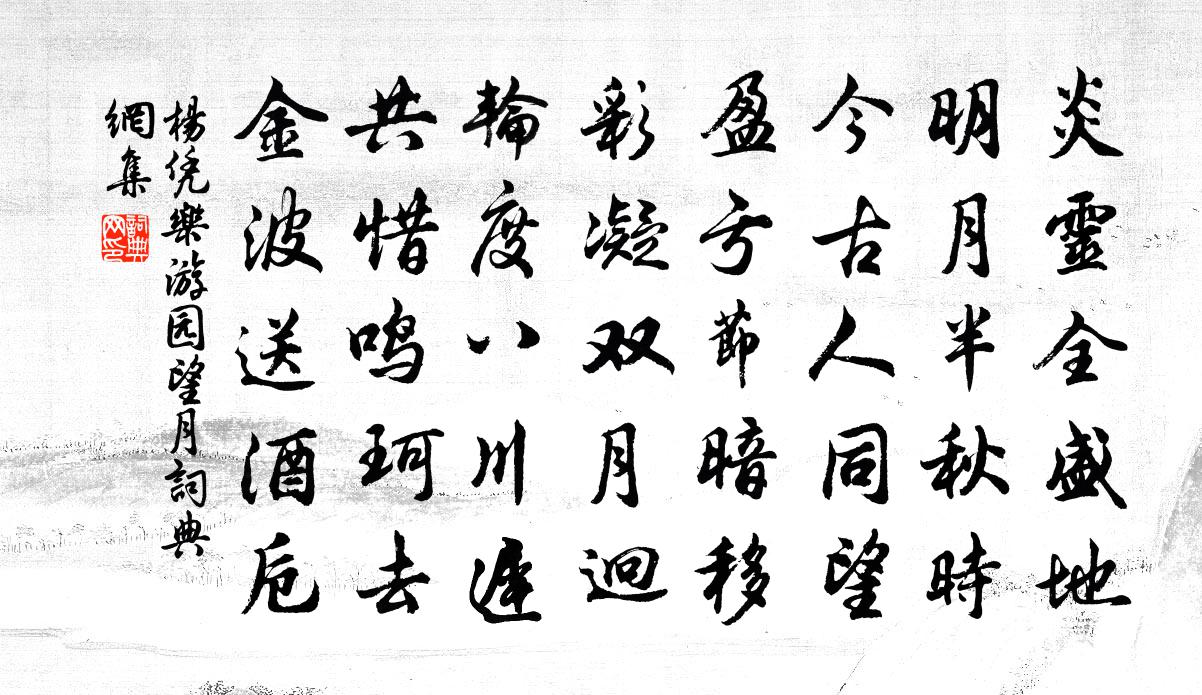 炎靈全盛地
明月半秋時
今古人同望
盈亏節暗移
彩凝双月迥
輪度八川遲
共惜鸣珂去
金波送酒卮
楊凭樂游园望月詞典
網集
詞典
网印